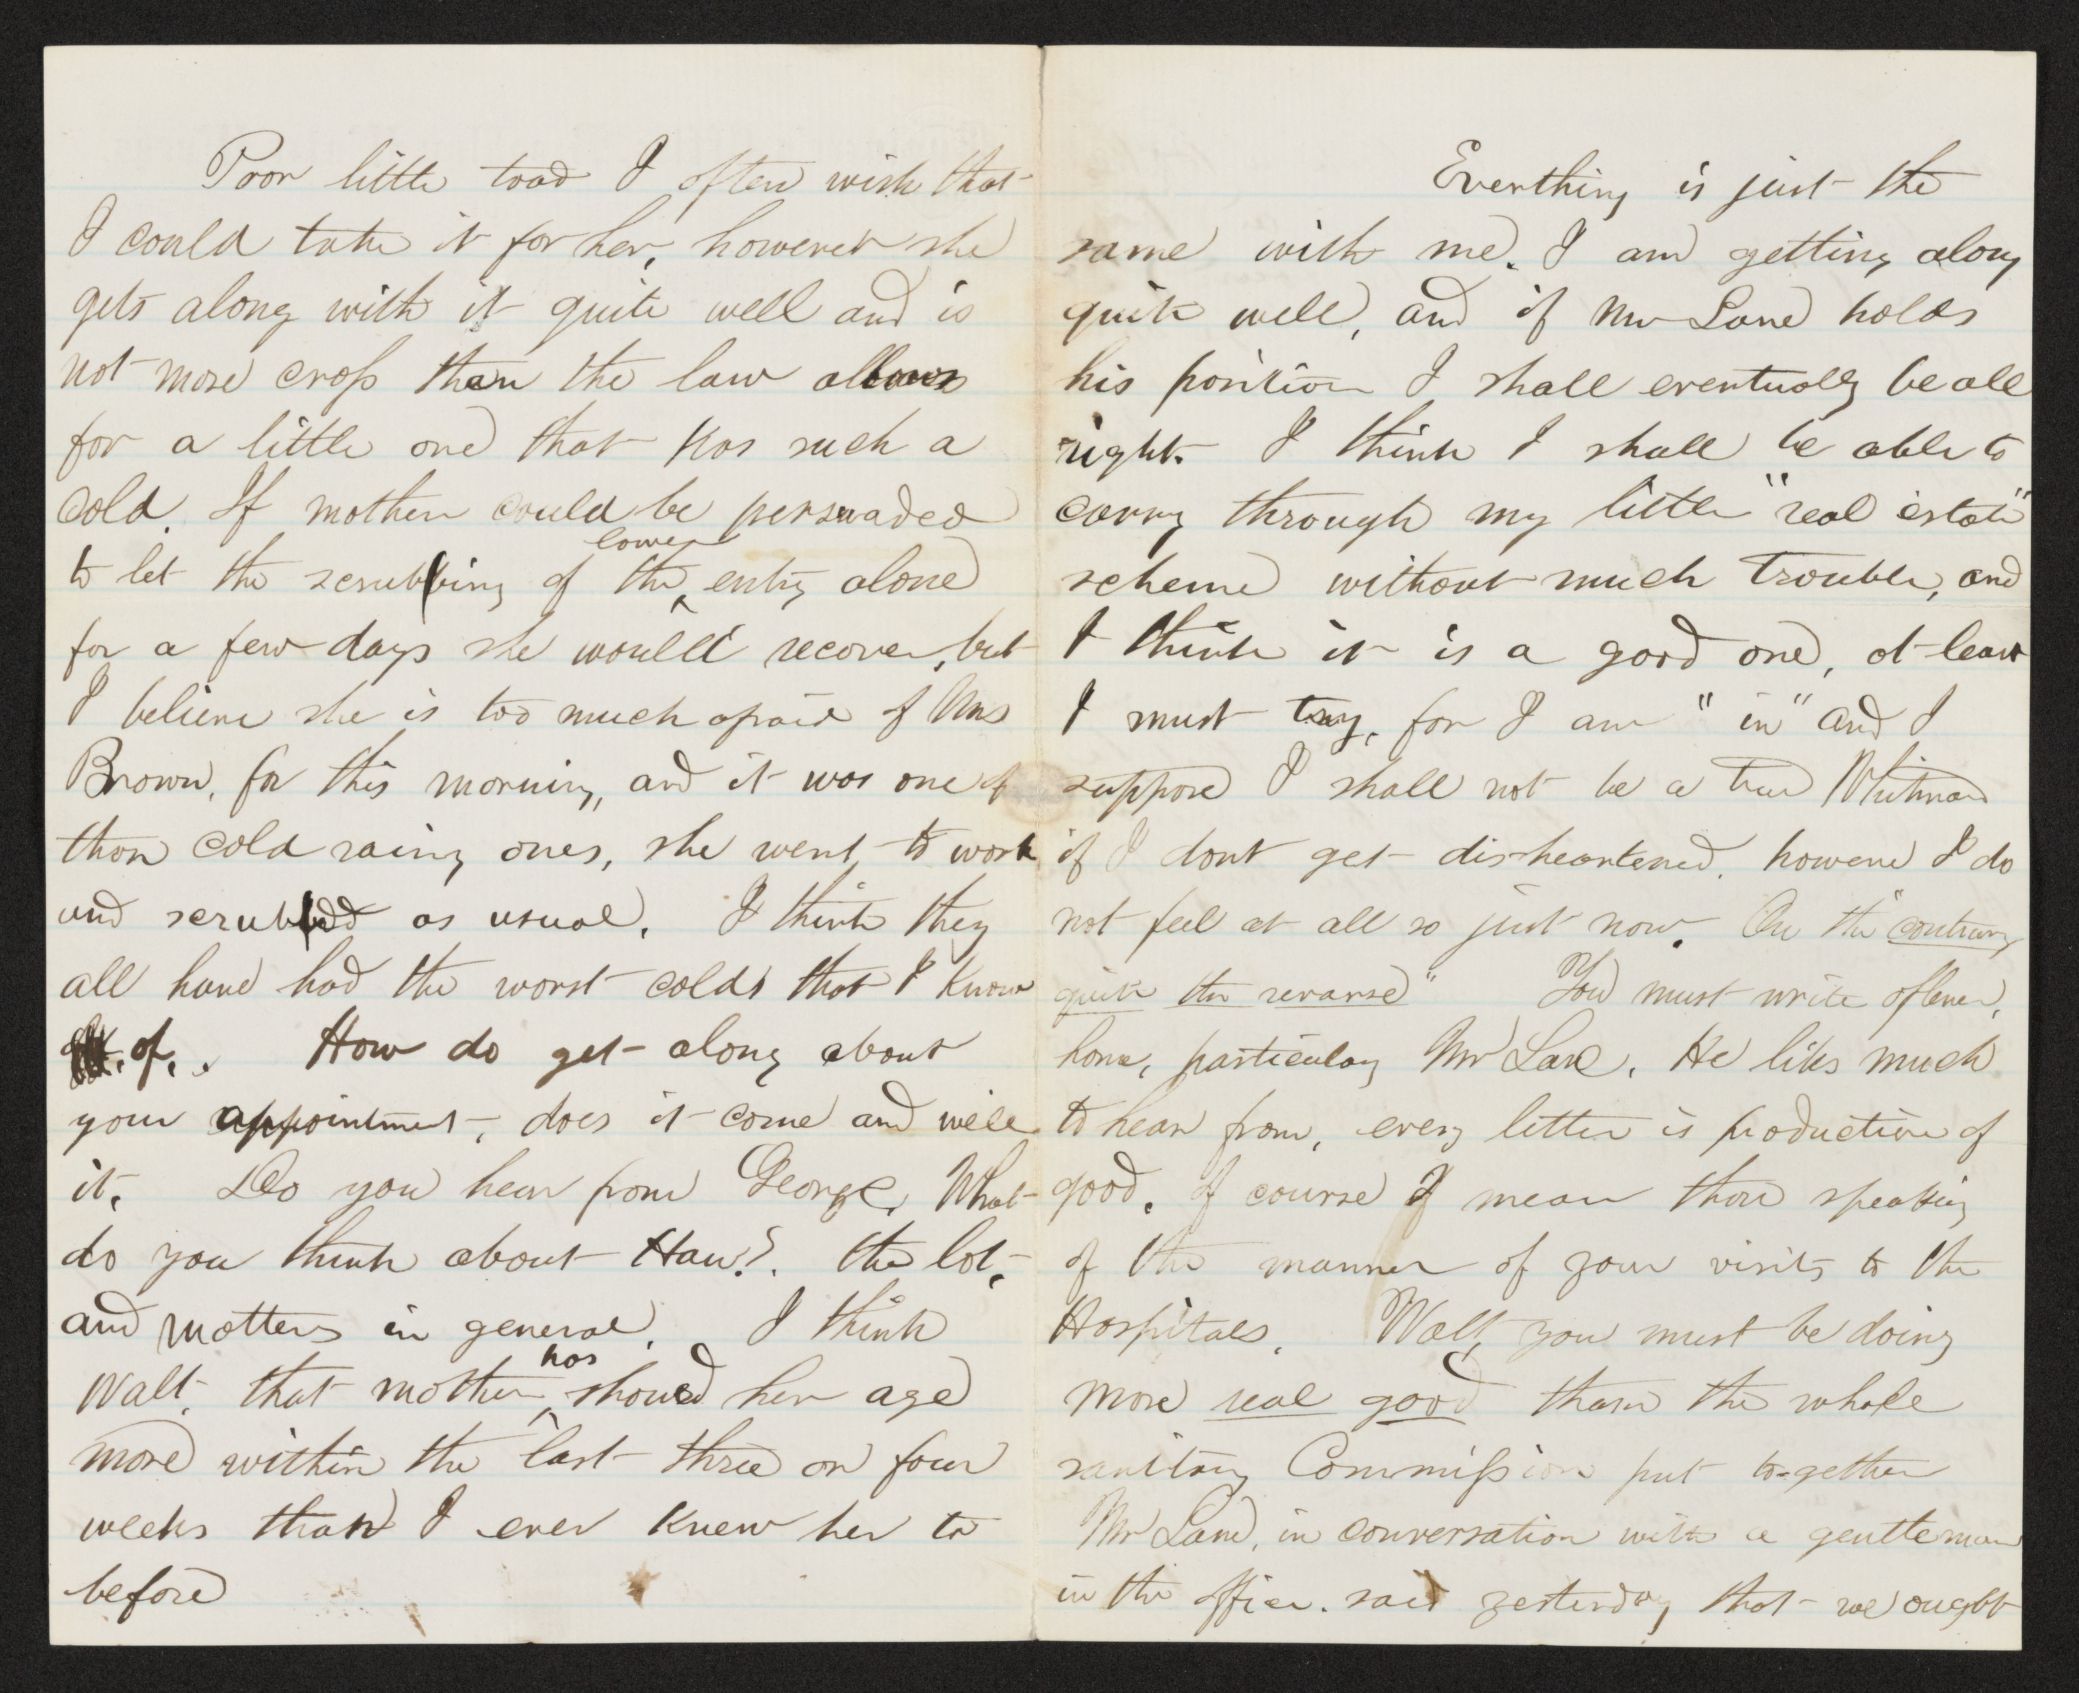 Poor little toad I often wish that
I could take it for her, however she
gets along with it quite well and is
not more cross than the law allows
for a little one that has such a
cold. If mother could be persuaded
to let the scrubbing of the lower entry alone
for a few days she would recover, but
I believe she is too much afraid of Mrs
Brown, for this morning, and it was one of
those cold rainy ones, she went to work
and scrubbed as usual. I think they
all have had the worst colds that I know
of. How do get along about
your appointment, does it come and will
it. Do you hear from George, What
do you think about Han?. the lot,
and matters in general. I think
Walt, that mother has showed her age
more within the last three or four
weeks than I ever knew her to
before
Everthing is just the
same with me. I am getting along
quite well, and if Mr Lane holds
his position I shall eventually be all
right. I think I shall be able to
carry through my little "real estate"
scheme without much trouble, and
I think it is a good one, at least
I must try, for I am "in" and I
suppose I shall not be a true Whitman
if I dont get dis-heartened, however I do
not feel at all so just now. On the "contrary
quite the revarse" You must write oftener,
home, particulay Mr Lane. He likes much
to hear from, every letter is productive of
good. Of course I mean those speaking
of the manner of your visits to the
Hospitals. Walt, you must be doing
more real good than the whole
sanitary Commission put to-gether
Mr Lane, in conversation with a gentleman
in the office. said yesterday that we ought